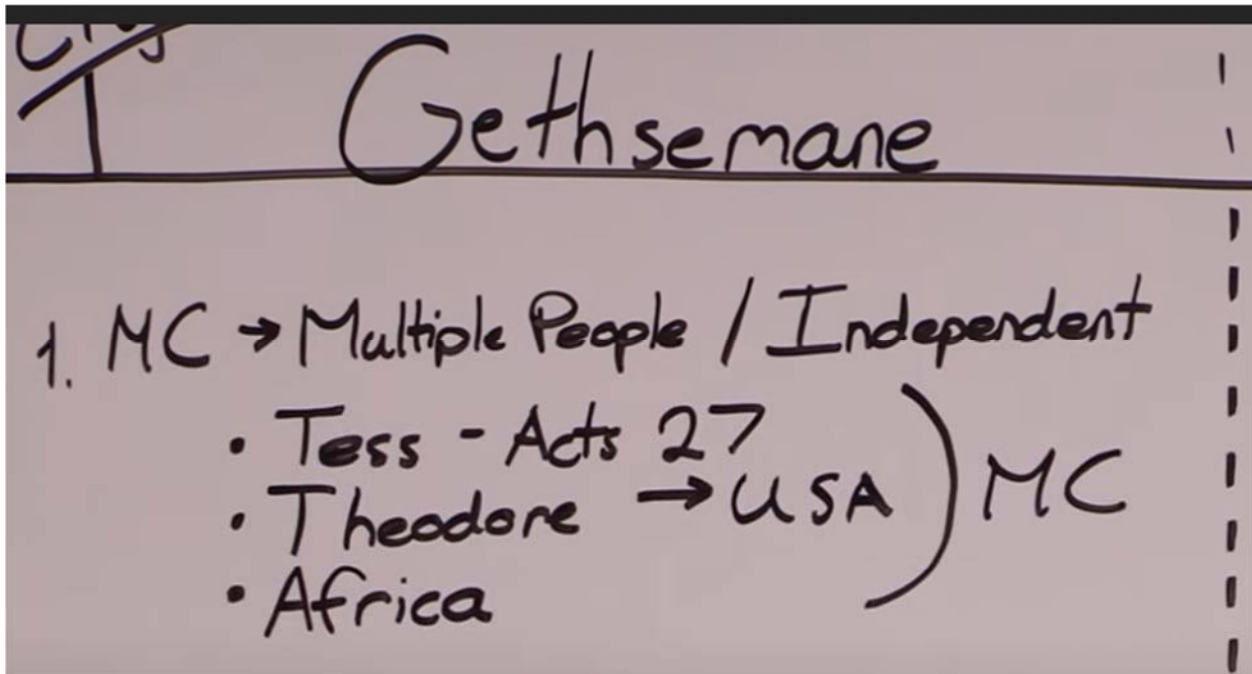 Gethsemane
1. MC → Multiple People / Independent
• Tess - Acts 27
• Theodore → USA ) MC
• Africa